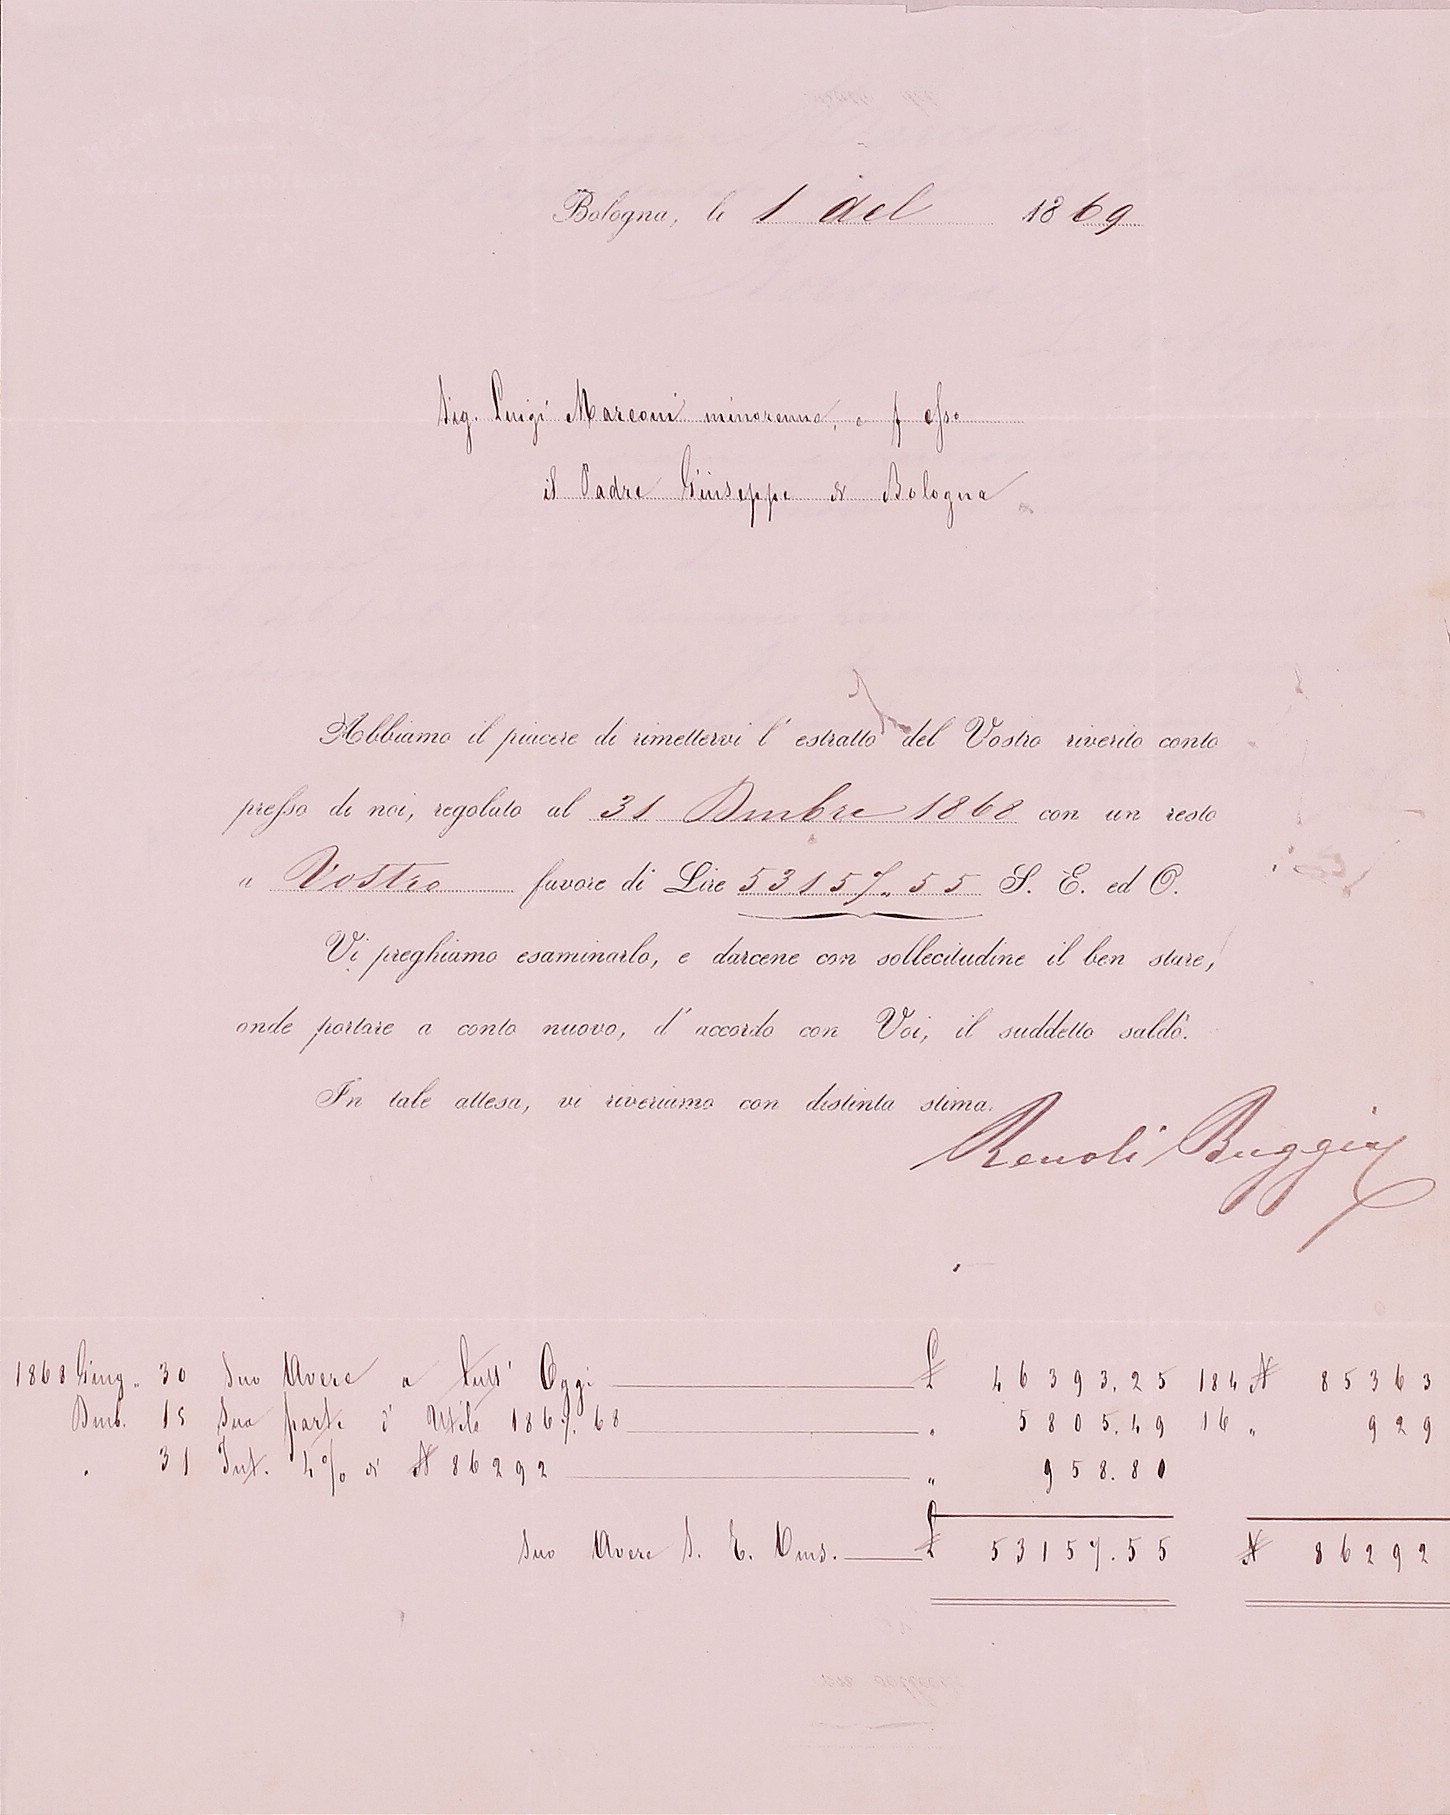 Bologna, li 1 del 1869
Sig. Luigi Marconi minorenne, e p esso
il Padre Giuseppe di Bologna
Abbiamo il piacere di rimettervi l' estratto del Vostro riverito conto
presso di noi, regolato al 31 Dmbre 1868 con un resto
a Vostro favore di Lire 53157.55 S. E. ed O.
Vi preghiamo esaminarlo, e darcene con sollecitudine il ben stare,
onde portare a conto nuovo, d' accordo con Voi, il suddetto saldo.
In tale attesa, vi riveriamo con distinta stima.
Renoli Buggio
1868 Giug. 30 Suo Avere a tutt' Oggi £ 46393.25 184 N 85363
Dmb. 15 Sua parte d' Utile 1867.68 " 5805.49 16 " 929
" 31 Int. 4% di N 86292 " 958.80
Suo Avere S. E. Oms. £ 53157.55 N 86292